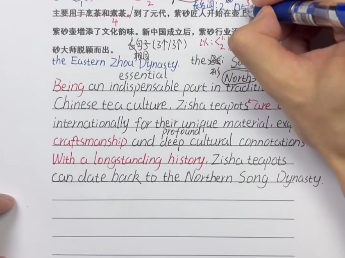 主要用于烹茶和煮茶。到了元代，紫砂匠人开始在壶
紫砂壶增添了文化韵味。新中国成立后，紫砂行业
砂大师脱颖而出。
the Eastern Zhou Dynasty. the
essential
Being an indispensable part in traditional
Chinese tea culture, Zisha teapots are
internationally for their unique material,
profound
craftsmanship and deep cultural connotations
With a longstanding history, Zisha teapots
can date back to the Northern Song Dynasty.